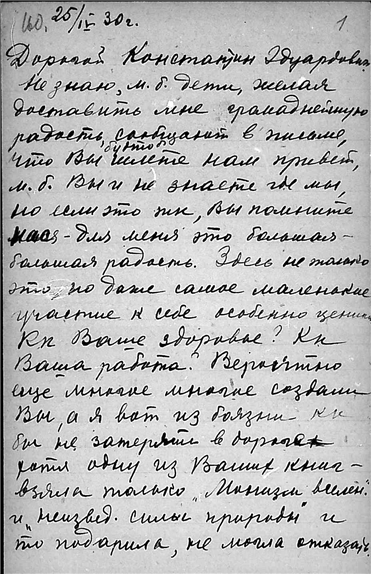 40. 25/IV 30 г. 1
Дорогой Константин Эдуардович
Не знаю, м. б. дети, желая
доставить мне громаднейшую
радость, сообщают в письме,
что будто б Вы шлете нам привет,
м. б. Вы и не знаете где мы,
но если это так, Вы помните
нас - для меня это большая -
большая радость. Здесь не только
это, но даже самое маленькое
участие к себе особенно ценишь
Кк Ваше здоровье? Кк
Ваша работа? Вероятно
еще многое многое создали
Вы, а я вот из боязни кк
бы не затерять в дороге
хотя одну из Ваших книг -
взяла только „Монизм вселен."
и „неизвед. силы природы" и
то подарила, не могла отказать.